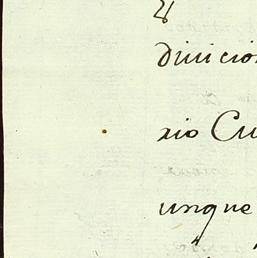 diuicio
rio Cu
unque